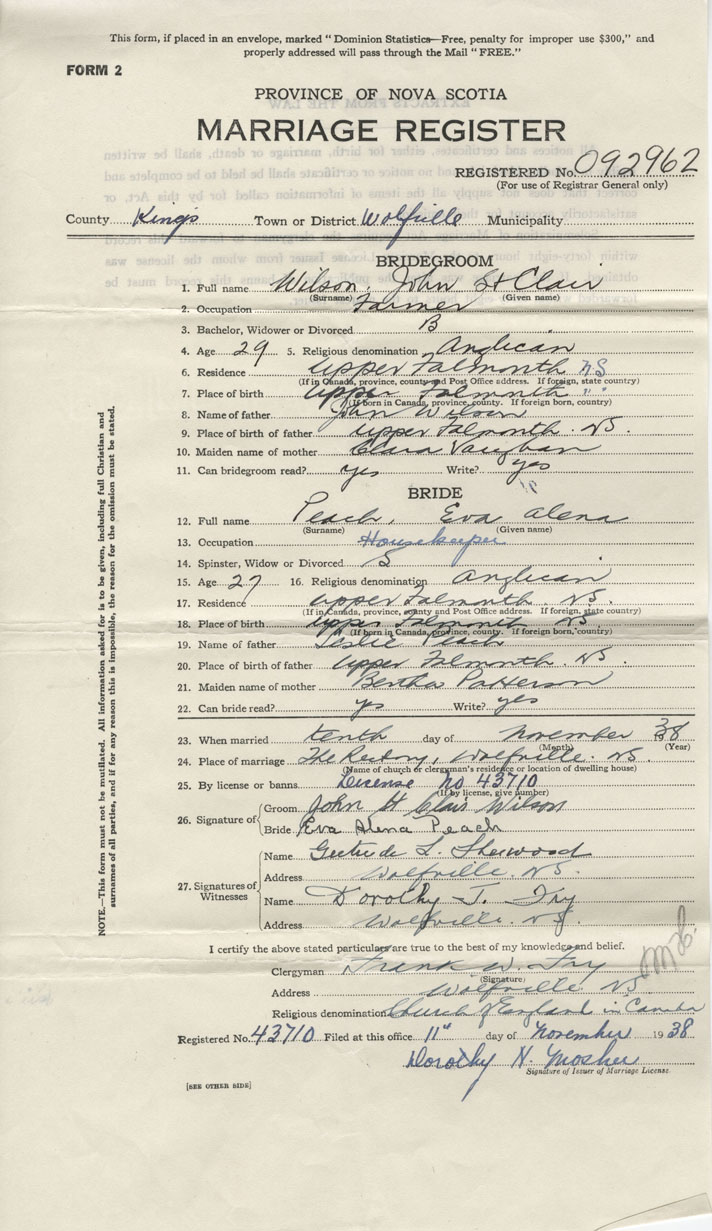 This form, if placed in an envelope, marked "Dominion Statistics—Free, penalty for improper use $300," and
properly addressed will pass through the Mail "FREE."
FORM 2
PROVINCE OF NOVA SCOTIA
MARRIAGE REGISTER
REGISTERED No. 092962
(For use of Registrar General only)
County Kings Town or District Wolfville Municipality
BRIDEGROOM
1. Full name Wilson, John St Clair
(Surname) (Given name)
2. Occupation Farmer
3. Bachelor, Widower or Divorced B
4. Age 29 5. Religious denomination Anglican
6. Residence Upper Falmouth N.S
(If in Canada, province, county and Post Office address. If foreign, state country)
7. Place of birth Upper Falmouth " "
(If born in Canada, province, county. If foreign born, country)
8. Name of father John Wilson
9. Place of birth of father Upper Falmouth. N.S.
10. Maiden name of mother Clara Vaughan
11. Can bridegroom read? yes Write? yes
BRIDE
12. Full name Peach, Eva Alena
(Surname) (Given name)
13. Occupation Housekeeper
14. Spinster, Widow or Divorced S
15. Age 27 16. Religious denomination Anglican
17. Residence Upper Falmouth N.S.
(If in Canada, province, county and Post Office address. If foreign, state country)
18. Place of birth Upper Falmouth N.S.
(If born in Canada, province, county. If foreign born, country)
19. Name of father Leslie Peach
20. Place of birth of father Upper Falmouth. N.S.
21. Maiden name of mother Bertha Patterson
22. Can bride read? yes Write? yes
23. When married tenth day of November 38
(Month) (Year)
24. Place of marriage The Rectory, Wolfville N.S.
(Name of church or clergyman's residence or location of dwelling house)
25. By license or banns License No 43710
(If by license, give number)
26. Signature of Groom John St Clair Wilson
Bride Eva Alena Peach
27. Signatures of Witnesses Name Gertrude L. Sherwood
Address Wolfville. N.S.
Name Dorothy J. Fry
Address Wolfville. N.S.
I certify the above stated particulars are true to the best of my knowledge and belief.
Clergyman Frank W. Fry
(Signature)
Address Wolfville N.S.
Religious denomination Church of England in Canada
Registered No. 43710 Filed at this office 11" day of November 1938
Dorothy N. Mosher
Signature of Issuer of Marriage License
[SEE OTHER SIDE]
NOTE.—This form must not be mutilated. All information asked for is to be given, including full Christian and
surnames of all parties, and if for any reason this is impossible, the reason for the omission must be stated.